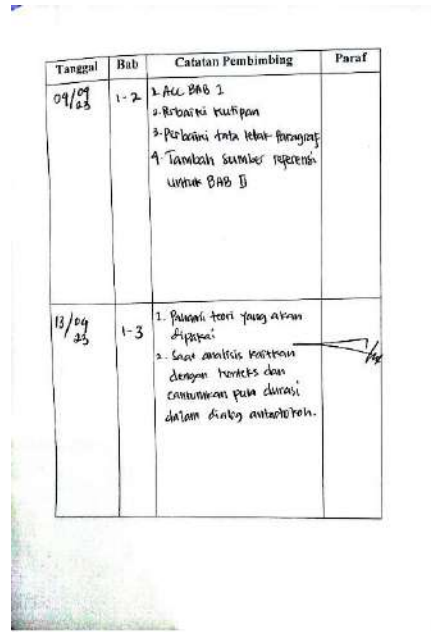 Tanggal Bab Catatan Pembimbing Paraf
09/09 23 1-2 1. ACC BAB 1
2. Perbaiki kutipan
3. Perbaiki tata letak Paragraf
4. Tambah sumber referensi
untuk BAB II
13/09 23 1-3 1. Pahami teori yang akan
dipakai
2. Saat analisis kaitkan
dengan konteks dan
cantumkan pula durasi
dalam dialog antartokoh.